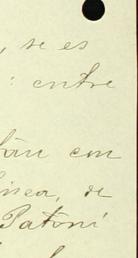 , se es
: entre
con
linea, de
Patoni